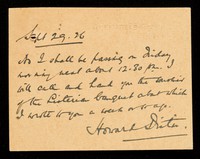 Sept 29. 36
As I shall be passing on Friday
morning next about 12-30 pm. I
will call and hand you the
of the Listerian banquet about which
I wrote to you a week or so ago.
Howard